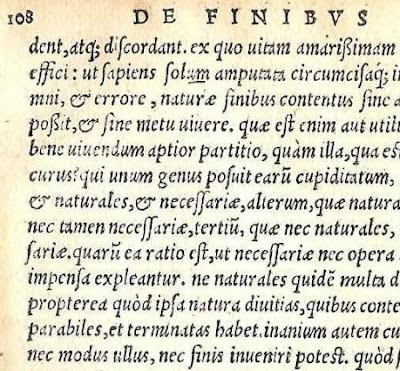 108 DE FINIBVS
dent, atq; discordant. ex quo uitam amarißimam
effici: ut sapiens solum amputata circumcisaq́; in
mni, & errore, naturæ finibus contentus sine a
poßit, & sine metu uiuere. quæ est enim aut utili
bene uiuendum aptior partitio, quàm illa, qua est
curus? qui unum genus posuit earũ cupiditatum,
& naturales, & necessariæ, alterum, quæ natura
nec tamen necessariæ, tertiũ, quæ nec naturales,
sariæ. quarũ ea ratio est, ut necessariæ nec opera
impensa expleantur. ne naturales quidẽ multa d
propterea quòd ipsa natura diuitias, quibus conte
parabiles, et terminatas habet. inanium autem cu
nec modus ullus, nec finis inueniri potest. quòd s